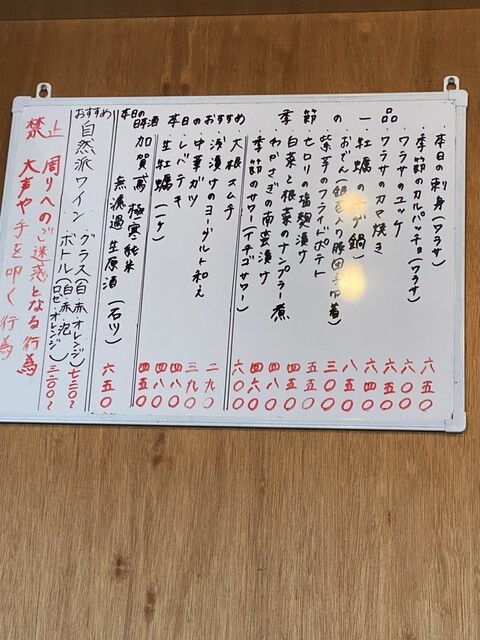 季節の一品
・本日の刺身(ワラサ)
・季節のカルパッチョ(ワラサ) 六五〇
・ワラサのユッケ 六〇〇
・ワラサのカマ焼き 六四〇
・牡蠣の 鍋) 八五〇
・おでん(銀杏入り豚団子巾着) 三〇〇
・紫芋のフライドポテト 五五〇
・セロリの塩麹漬け
・白菜と根菜のナンプラー煮 四八〇
・わかさぎの南蛮漬け 四六〇
・季節のサワー(イチゴサワー) 六〇〇
本日のおすすめ
・大根キムチ 二九〇
・浅漬けのヨーグルト和え
・中華ガツ 三九〇
・レバテキ 四八〇
・生牡蠣(一ケ) 四五〇
本日の日本酒
加賀鳶 極寒純米
無濾過生原酒(石川) 六五〇
おすすめ
自然派ワイン
グラス(白・赤・オレンジ) 七三〇〜
ボトル(白・赤・泡・ロゼ・オレンジ) 三二〇〇〜
禁止
周りへのご迷惑となる行為
大声や手を叩く行為